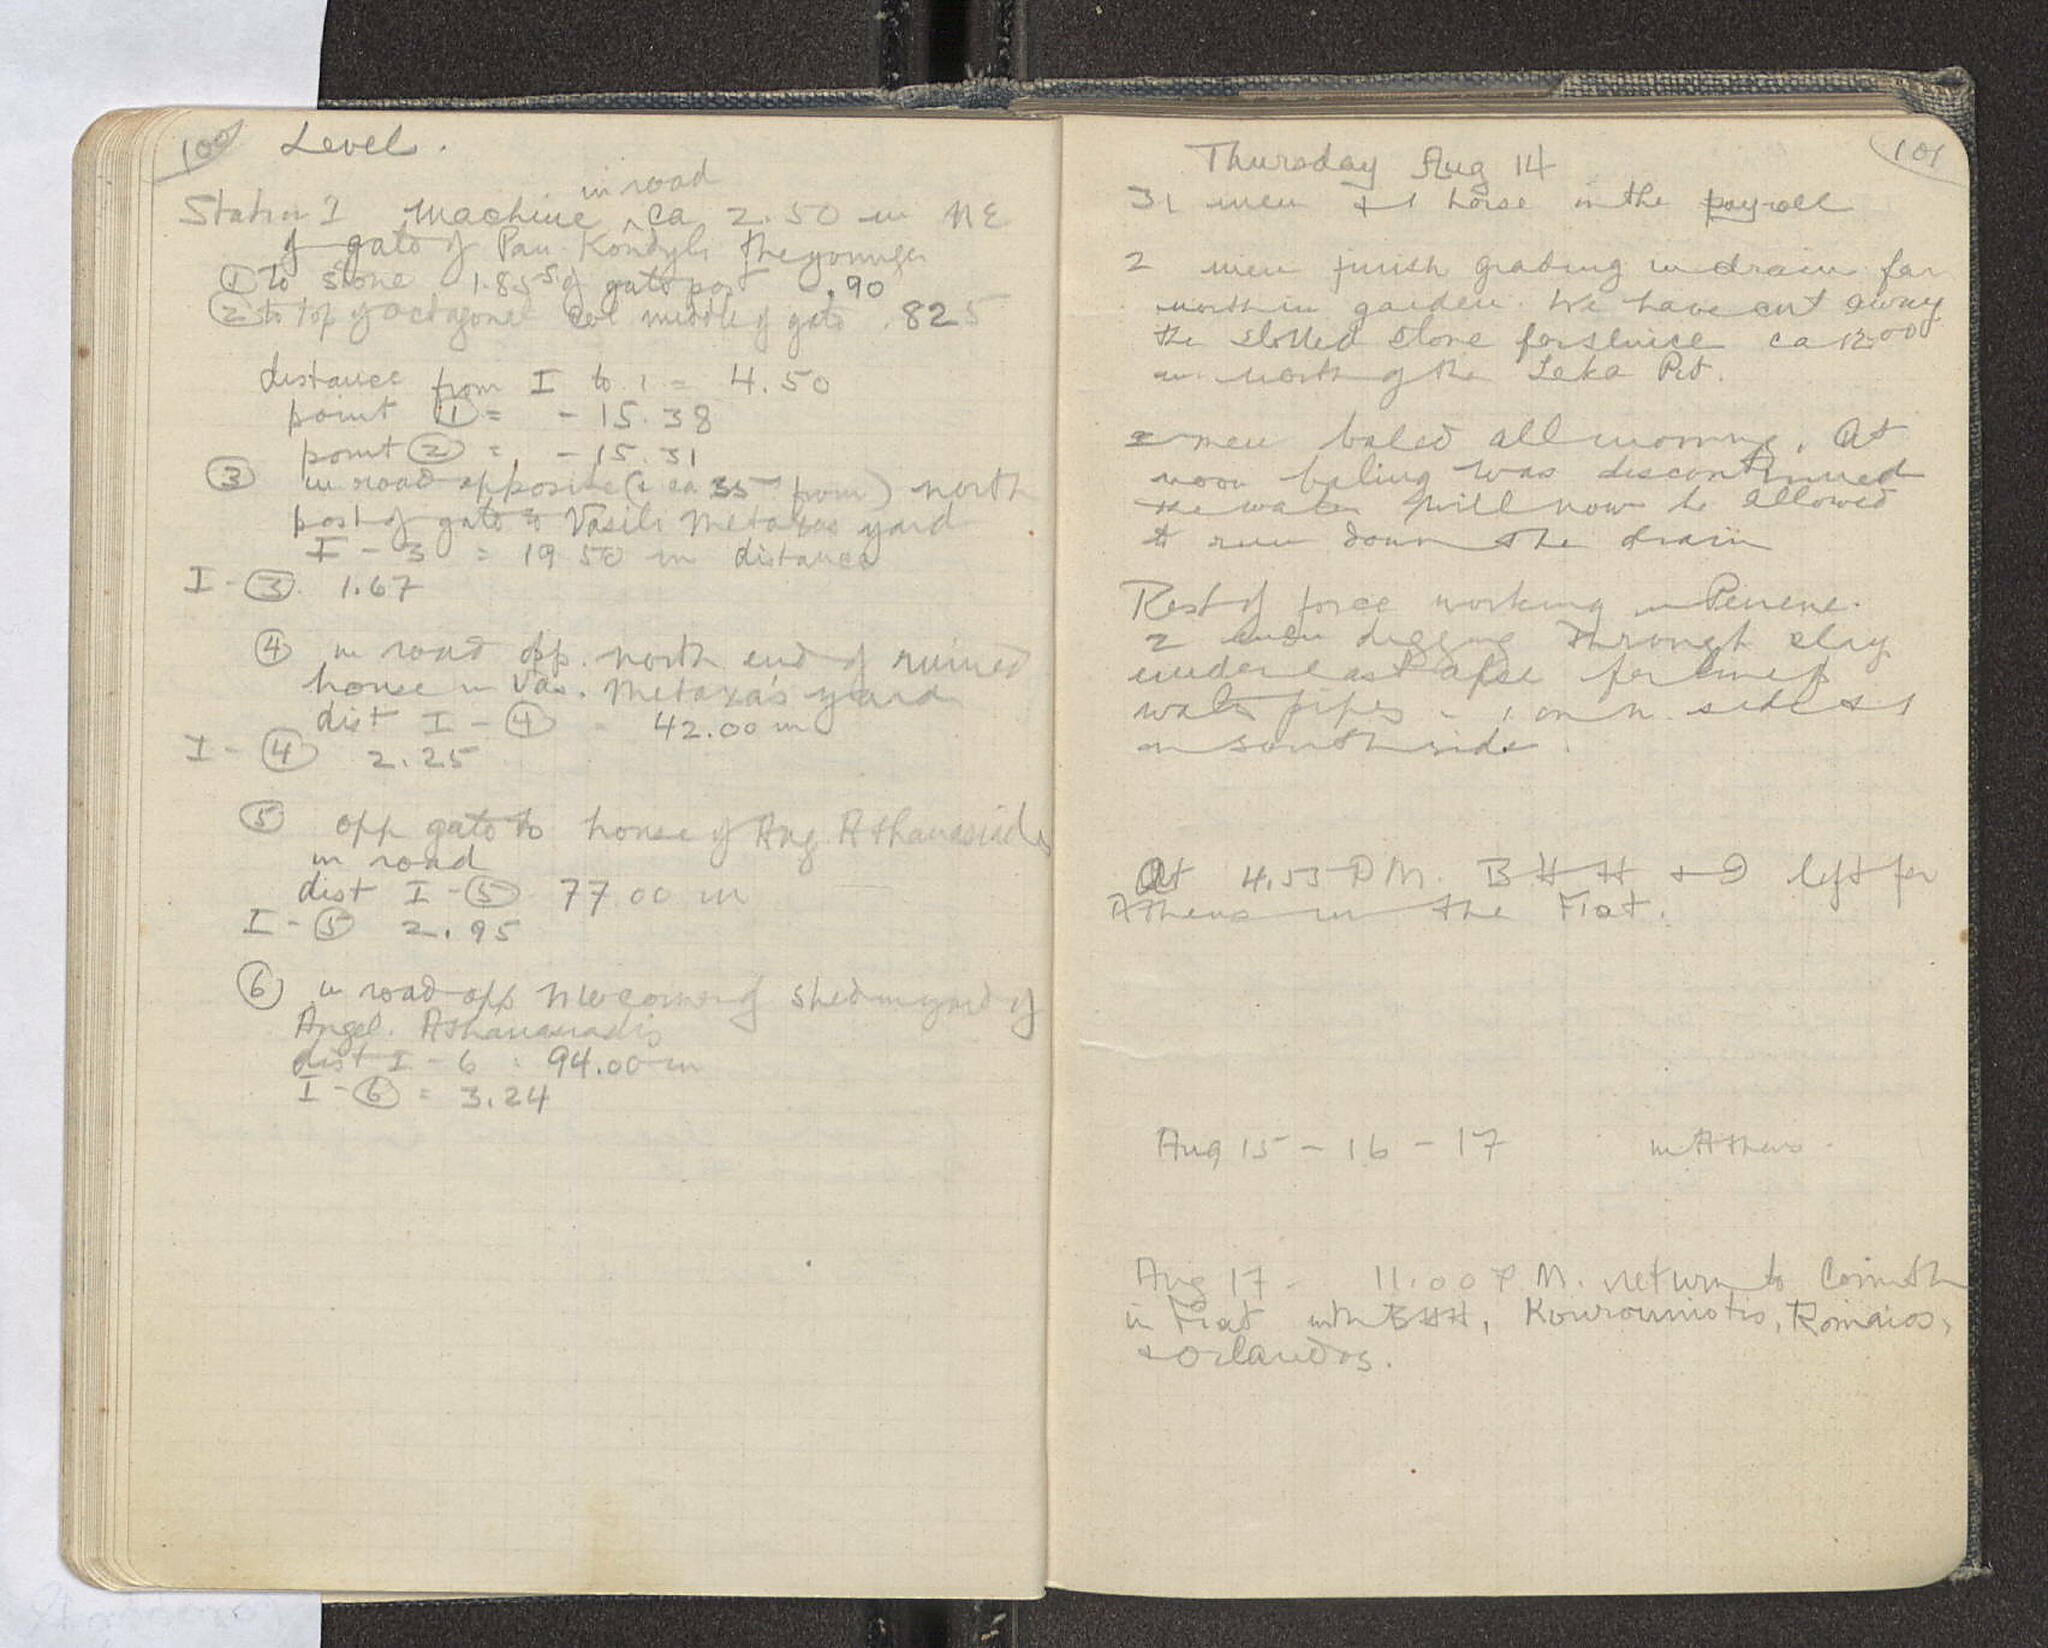 100 Level.
in road
Station I Machine ^ ca 2.50 m NE
of gate of Pan. Kondyli the younger
① to stone 1.85 S of gate post .90
② to top of octagonal col middle of gate .825
distance from I to 1 = 4.50
point ① = - 15.38
point ② = - 15.31
③ in road opposite (& ca 35 from) north
post of gate to Vasili Metaxas yard
I - 3 = 19 50 m distance
I - ③ 1.67
④ in road opp. north end of ruined
house in Vas. Metaxa's yard
dist I - ④ - 42.00 m
I - ④ 2.25
⑤ opp gate to house of Ang. Athanasiadis
in road
dist I - ⑤ 77 00 m
I - ⑤ 2.95
⑥ in road opp NW corner of shed in yard of
Angel. Athanasiadis
dist I - 6 = 94.00 m
I - ⑥ = 3.24
101
Thursday Aug 14
31 men & 1 horse on the payroll
2 men finish grading in drain far
north in garden. We have cut away
the slotted stone for sluice ca 12.00
m north of the Leka Pit.
2 men baled all morning. At
noon baling was discontinued
the water will now be allowed
to run down the drain
Rest of force working in Peirene.
2 men digging through clay
under east apse for
water pipes - 1 on n. side & 1
on south side.
At 4.53 P.M. BHH & I left for
Athens in the Fiat.
Aug 15 - 16 - 17 in Athens.
Aug 17 - 11.00 P.M. return to Corinth
in Fiat with BHH, Kourouniotis, Romaios,
& Orlandos.